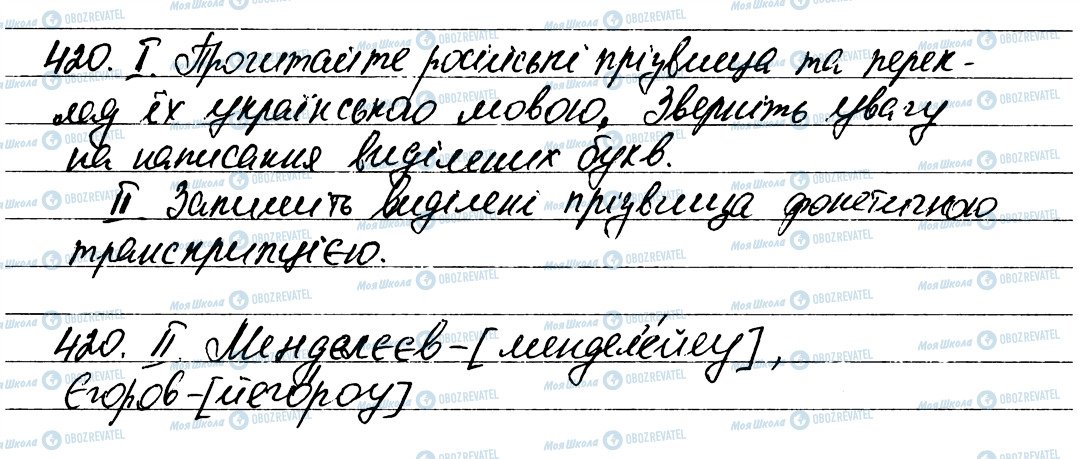 420. I. Прочитайте російські прізвища та перек-
лад їх українською мовою. Зверніть увагу
на написання виділених букв.
II Запишіть виділені прізвища фонетичною
транскрипцією.
420. II. Менделєєв-[менделéйеу],
Єгоров-[йегóроу]